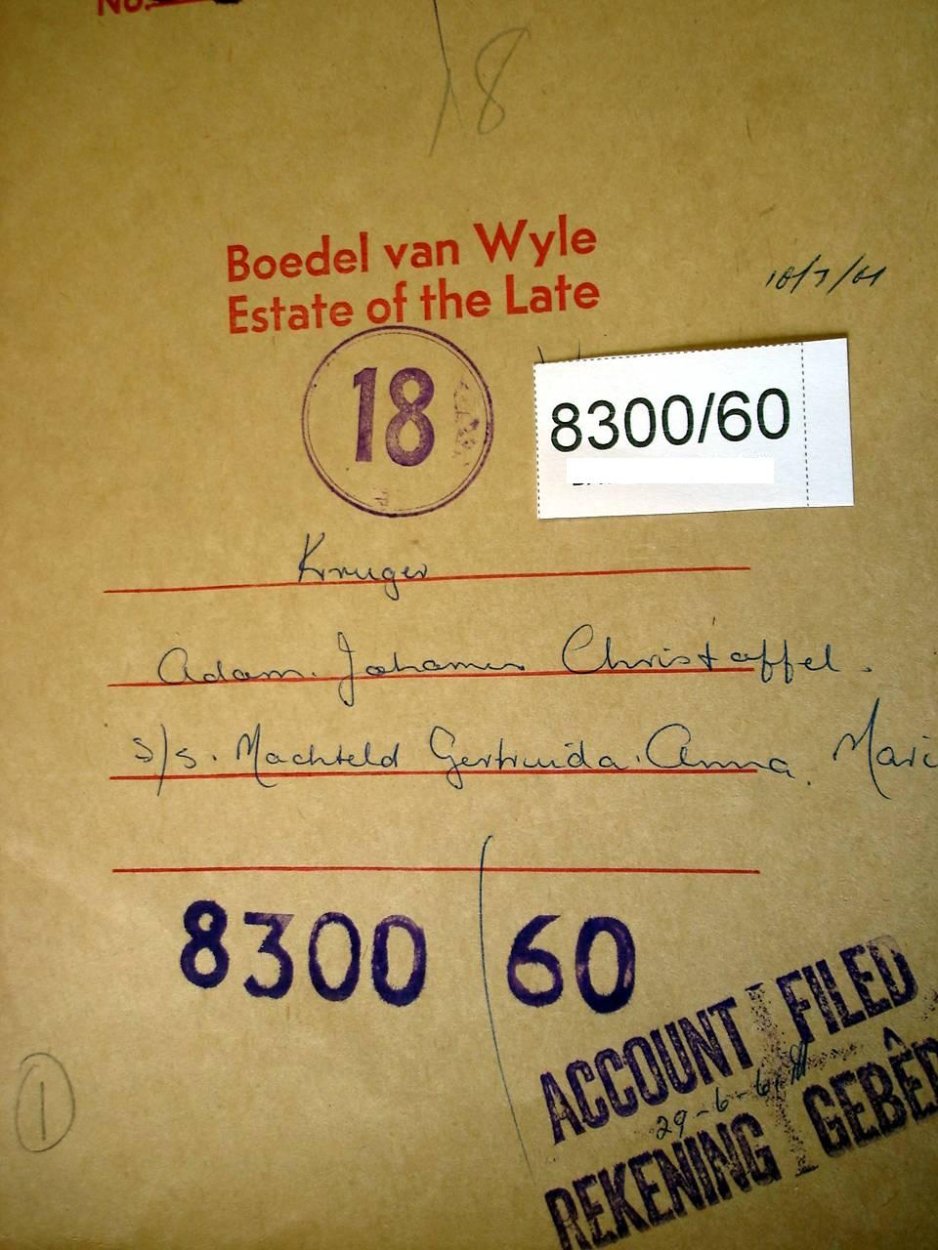 No.
18
Boedel van Wyle
Estate of the Late
18
8300/60
Kruger
Adam Johannes Christoffel.
s/s. Machteld Gertruida Anna Mari
8300/60
1
ACCOUNT FILED
29-6-61
REKENING GEBÊR